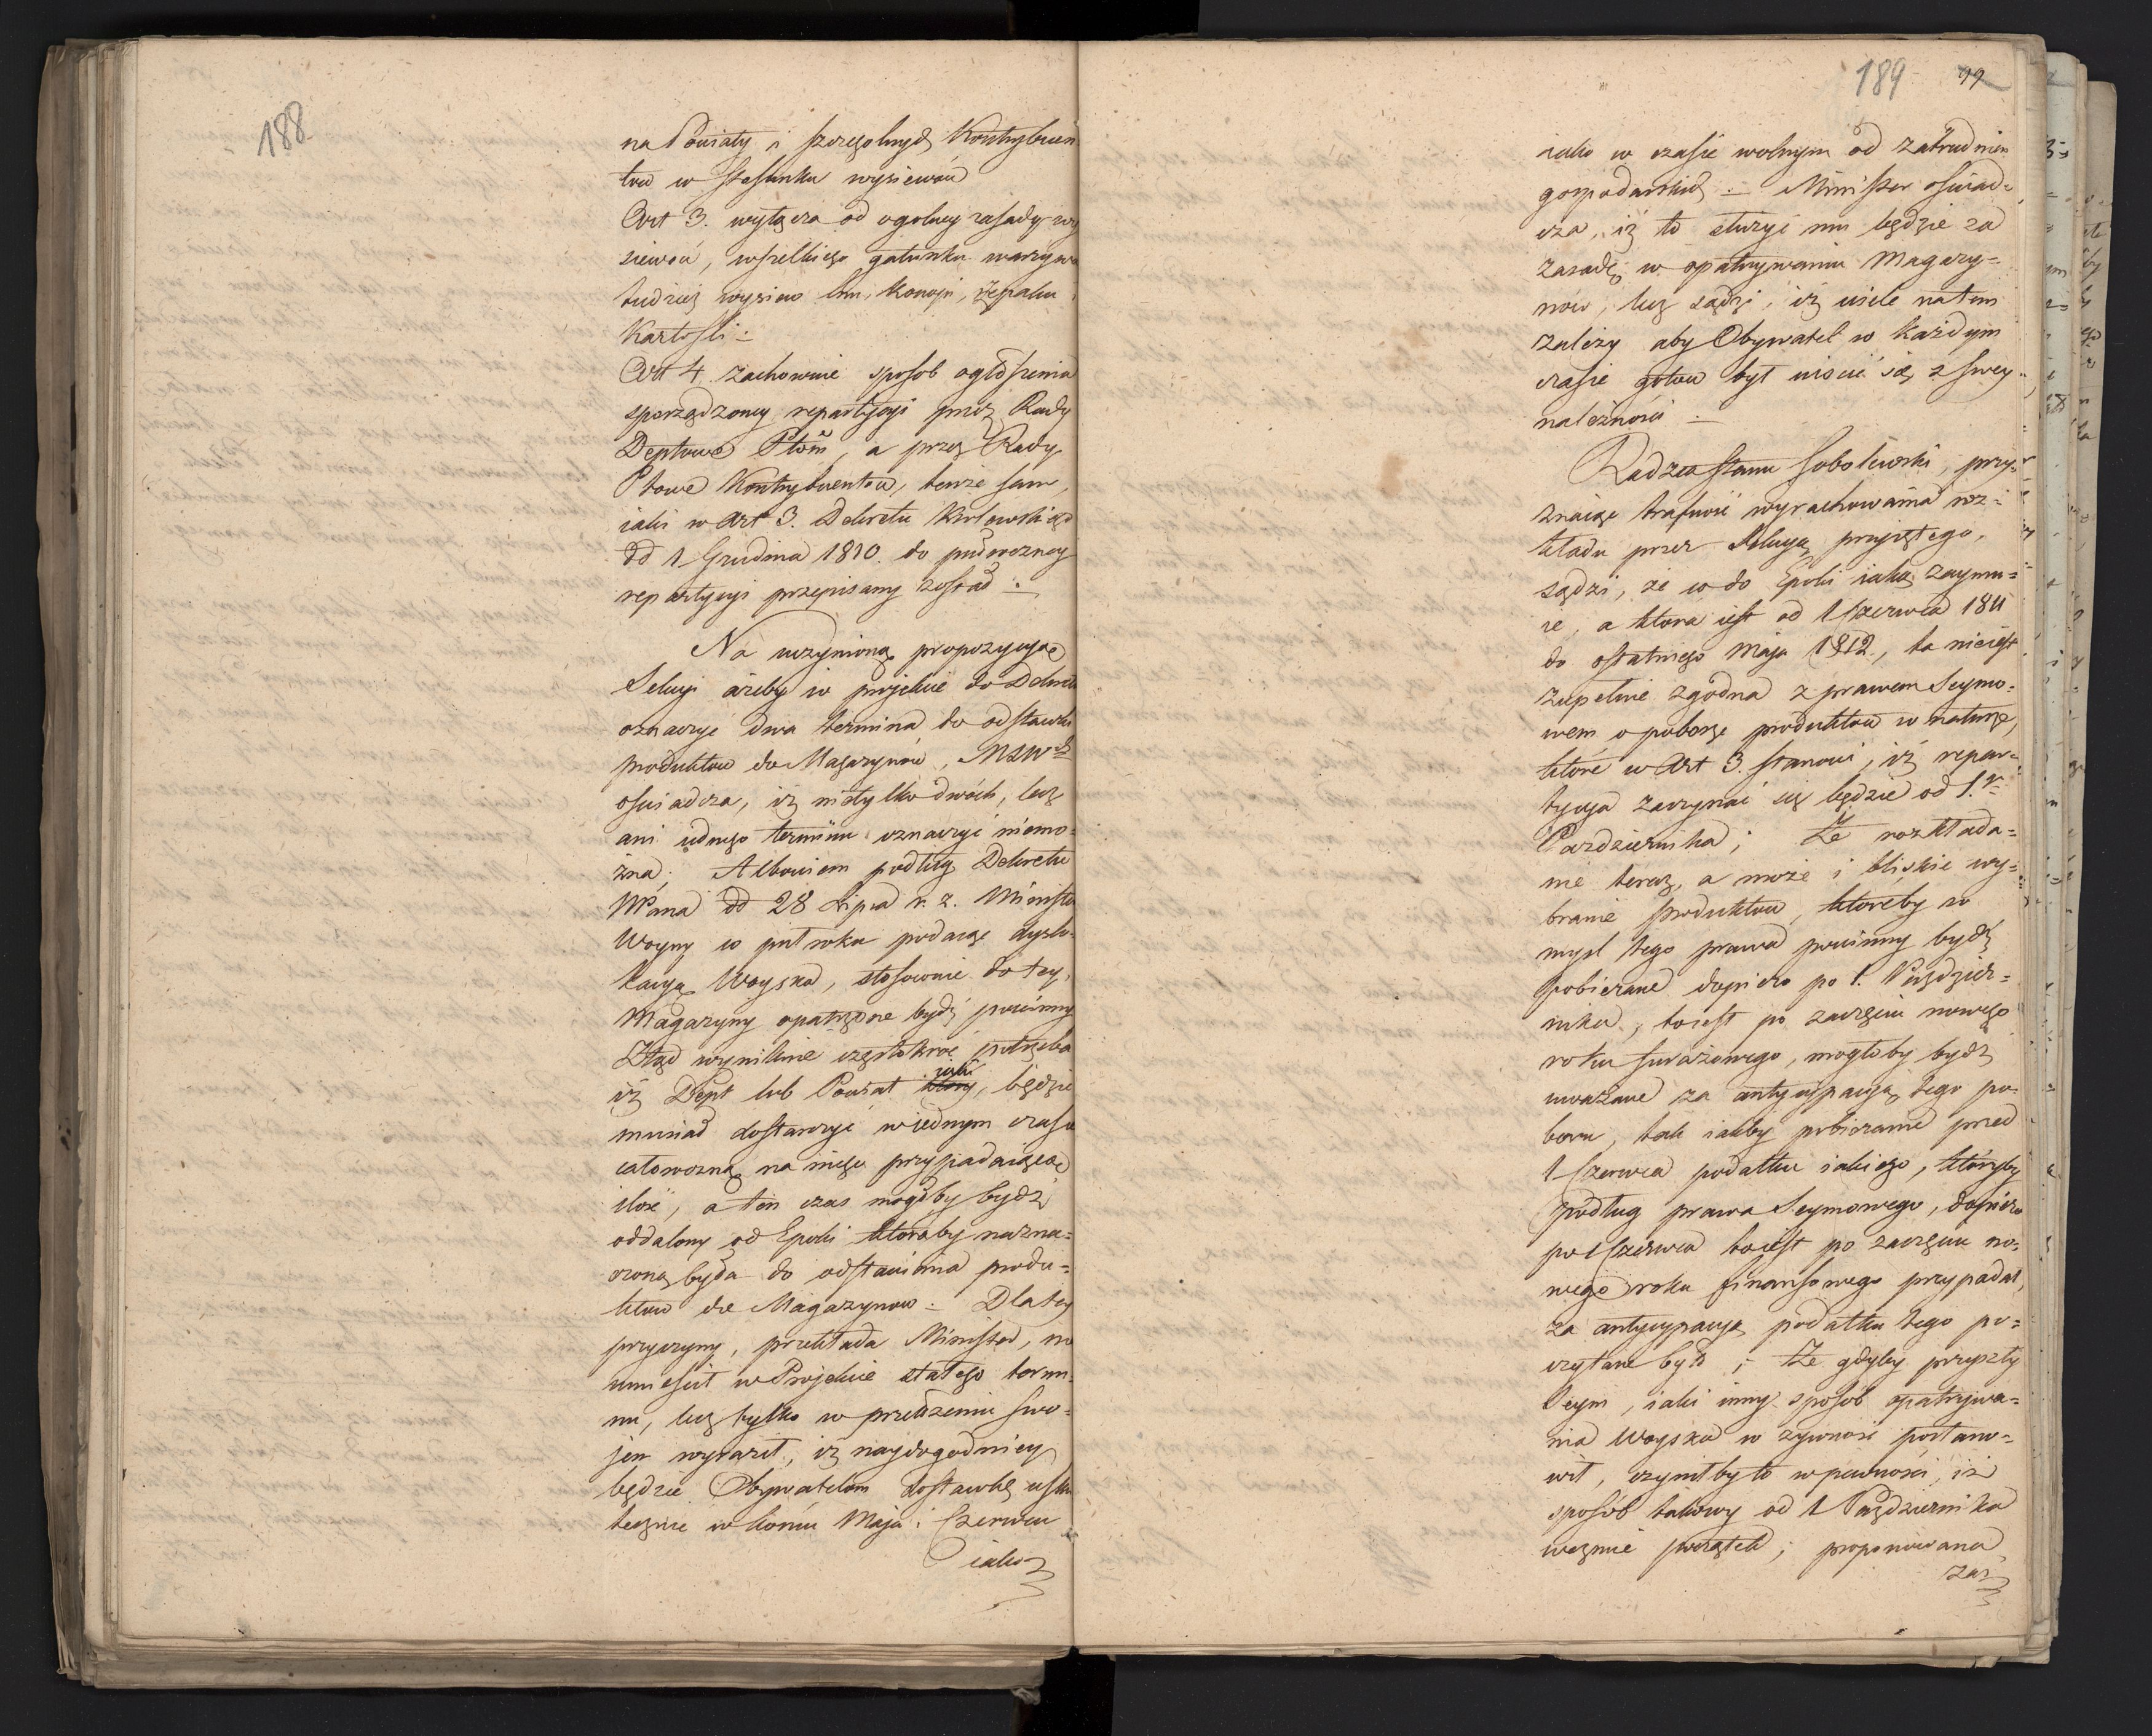 188
na Powiaty i szczegolnych Kontrybuen
tow w stosunku wysiewów
Art 3. wyłącza od ogolney zasady wy
siewów, wszelkiego gatunku warzywa
tudzież wysiew lnu, konopi, rzepaku
Kartofli :
Art 4. zachowuie sposob ogłoszenia
sporządzoney repartycyi przez Rady
Deptowe Ptom, a przez Rady
Ptowe Kontrybuentow, tenże sam,
iaki w Art 3. Dekretu Królewskiego
od 1 Grudnia 1810. do pudoroczney
repartycyi przepisany został :
Na uczynioną propozycyą
Sekcyi ażeby w projekcie do Dekretu
oznaczyć dwa termina do odstawki
produktow do Magazynów, MSW
oświadcza, iż nietylko dwóch, lecz
ani iednego terminu oznaczyć niemo=
żna; Albowiem podług Dekretu
NPana od 28 Lipca r. z. Minister
Woyny co put roku podaiąc dyslo=
kacyą Woyska, stosownie do tey,
Magazyny opatrzone bydź powinny
Ztąd wyniknie częstokroć potrzeba
iż Dept lub Powiat który iaki, będzie
musiał dostawić w iednym czasie
całoroczną na niego przypadaiącą
ilość, a ten czas mogłby bydź
oddalony od Epoki któraby nazna=
czoną była do odstawienia produ=
któw do Magazynow : Dla tey
przyczyny, przekłada Minister, nie
umieścił w Projekcie stałego termi=
nu, lecz tylko w przełożeniu swo=
jem wyraził, iż naydogodniey
będzie Obywatelom dostawkę usku
tecznić w końcu Maja i Czerwcu
iako
189 99
iako w czasie wolnym od zatrudnień
gospodarskich : Minister oświad=
cza, iż to służyć mu będzie za
zasadę w opatrywaniu Magazy=
nów, lecz sądzi, iż wiele na tem
zależy aby Obywatel w każdym
czasie gotow był uiścić się z swey
należności :
Radzca Stanu Sobolewski, przy=
znaiąc trafność wyrachowania roz=
kładu przez Sekcyą przyiętego,
sądzi, że co do Epoki iaką zaymu=
ie, a która iest od 1 Czerwca 1811
do ostatniego Maja 1812, ta nie iest
zupełnie zgodna z prawem Seymo=
wem o poborze produktow w naturze,
które w Art 3. stanowi, iż repar=
tycya zaczynać się będzie od 1.
Października; Że rozkłada=
nie teraz, a może i bliskie wy=
branie produktow, któreby w
myśl tego prawa powinny bydź
pobierane dopiero po 1. Paździer=
nika, to iest po zaczęciu nowego
roku furażowego, mogłoby bydź
uważane za antycypacyą tego po=
boru, tak iakby pobieranie przed
1 Czerwca podatku iakiego, któryby
podług prawa Seymowego, dopiero
po 1 Czerwca to iest po zaczęciu no=
wego roku finansowego przypadał,
za antycypacyą podatku tego po=
czytane było ; Że gdyby przyszły
Seym, iaki inny sposob opatrywa=
nia Woyska w żywność postano=
wił, czyniłby to w pewności, iż
sposób takowy od 1 Października
weźmie początek; proponowana
zaś